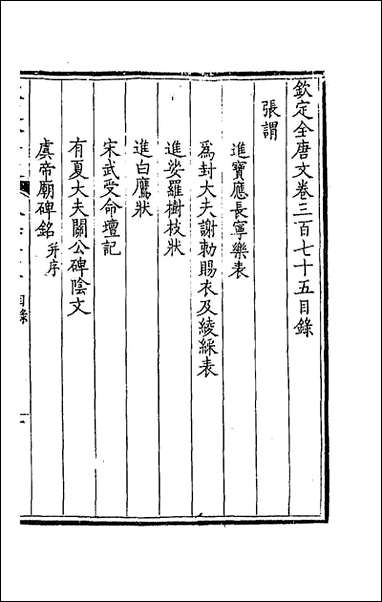 欽定全唐文卷三百七十五目錄
張謂
進寶應長寧樂表
為封大夫謝勅賜衣及綾綵表
進娑羅樹枝狀
進白鷹狀
宋武受命壇記
有夏大夫關公碑陰文
虞帝廟碑銘并序
目錄